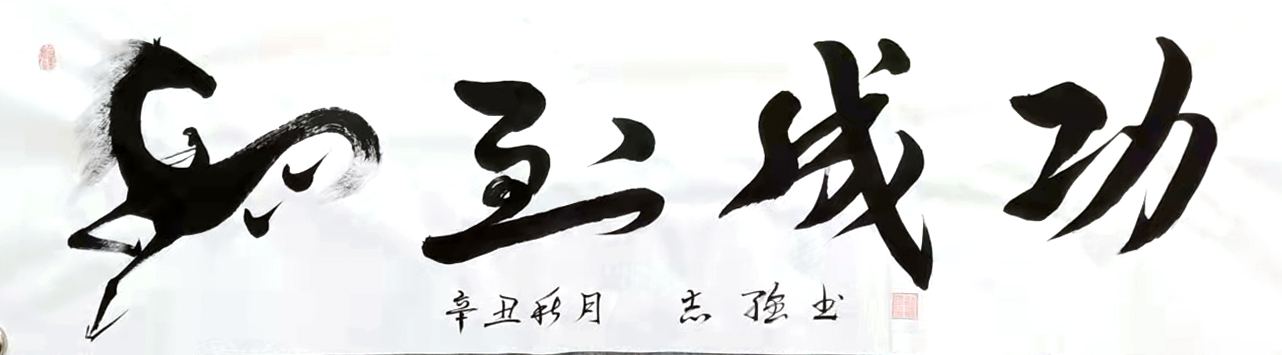 马到成功
辛丑秋月 志强书